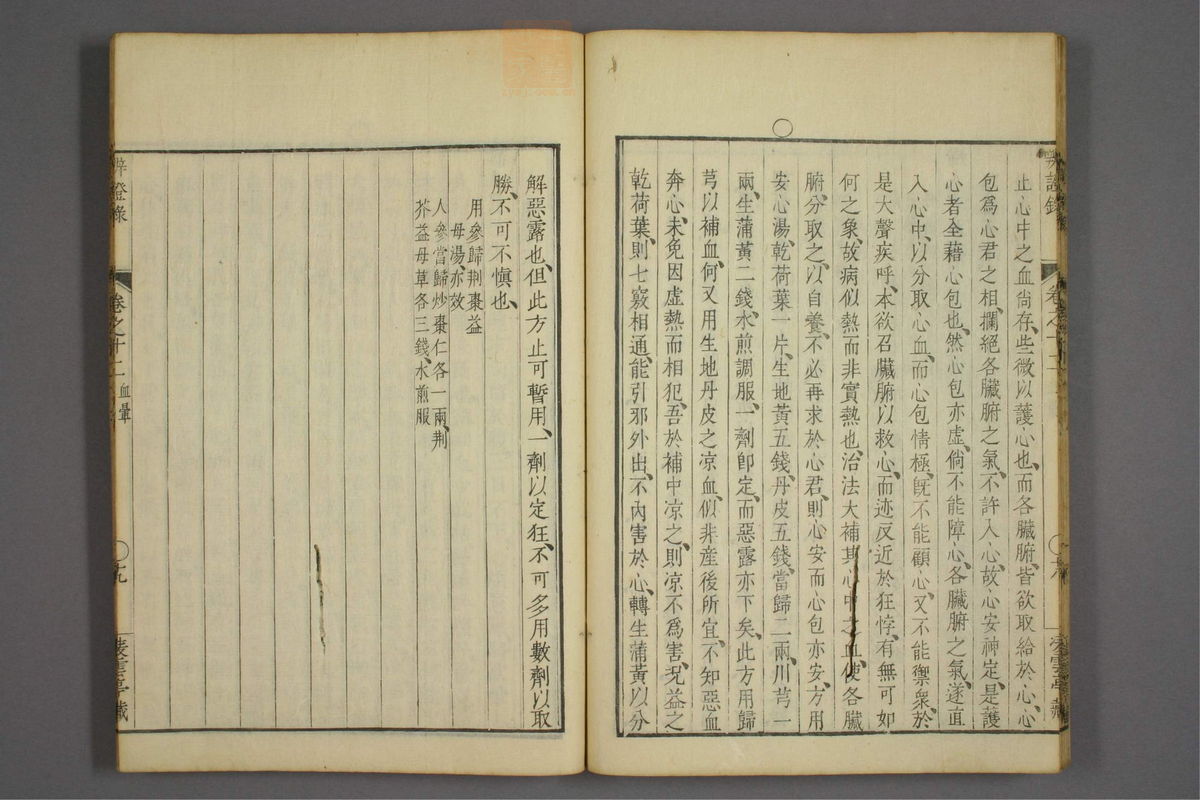 止心中之血尚存、些微以護心也、而各臟腑、皆欲取給於心、心
包爲心君之相、攔絕各臟腑之氣、不許入心、故心安神定、是護
心者、全藉心包也、然心包亦虛、倘不能障心、各臟腑之氣、遂直
入心中、以分取心血、而心包情極、旣不能顧心、又不能禦衆、於
是大聲疾呼、本欲召臟腑以救心、而迹反近於狂悖、有無可如
何之象、故病似熱而非實熱也、治法大補其心中之血、使各臟
腑、分取之、以自養、不必再求於心君、則心安而心包亦安、方用
安心湯、乾荷葉一片、生地黃五錢、丹皮五錢、當歸二兩、川芎一
兩、生蒲黃二錢、水煎調服、一劑卽定、而惡露亦下矣、此方用歸
芎以補血、何又用生地丹皮之凉血、似非産後所宜、不知惡血
奔心、未免因虛熱而相犯、吾於補中凉之、則凉不爲害、况益之
乾荷葉、則七竅相通、能引邪外出、不內害於心、轉生蒲黃以分
辨證錄
卷之十二
凌雲亭藏
解惡露也、但此方止可暫用、一劑以定狂、不可多用數劑以取
勝、不可不愼也、
用參歸荆棗益
母湯、亦效
人參當歸炒棗仁各一兩、荆
芥益母草各三錢、水煎服
辨證錄
卷之十二
血暈
九
凌雲亭藏